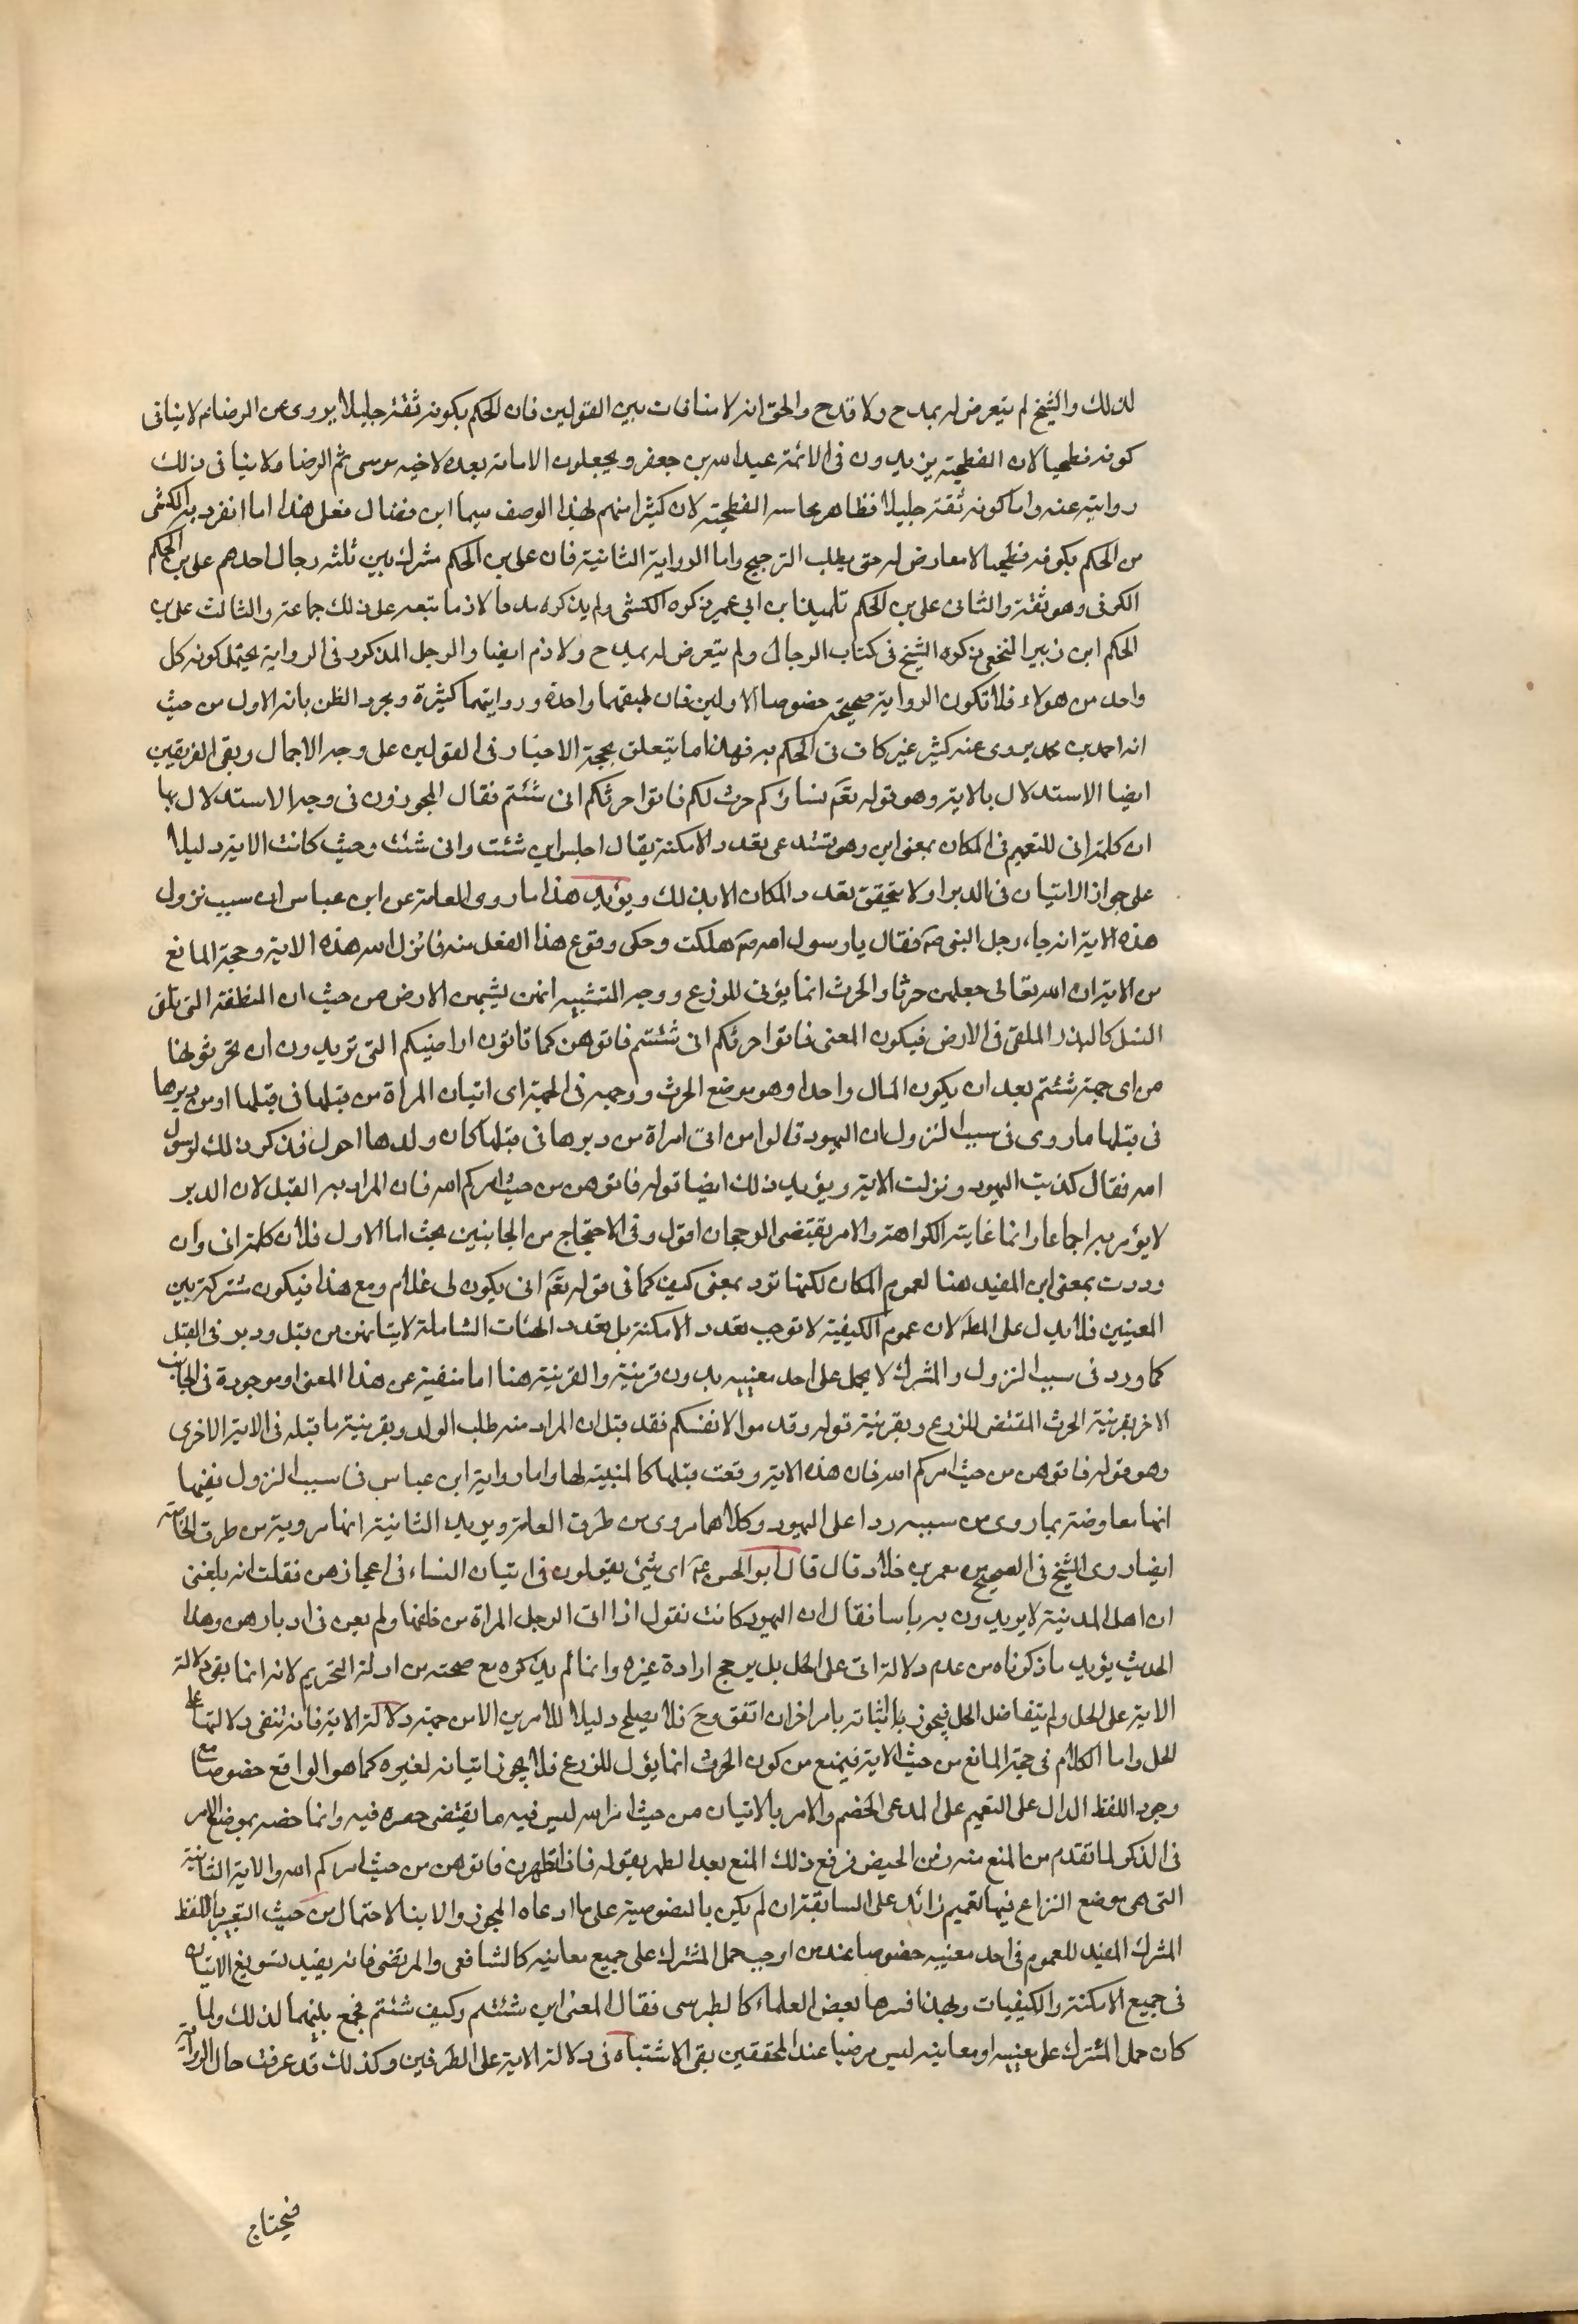 لذلك والشيخ لم يتعرض له بمدح ولا قدح والحق انه لا منافات بين القولين فان الحكم بكونه ثقة جليلا يروى عن الرضا ع لا ينافى
كونه فطحيا لان الفطحية يزيدون فى الائمة عبد الله بن جعفر ويجعلون الامامة بعده لاخيه موسى ثم الرضا فلا ينافى ذلك
روايته عنه واما كونه ثقة جليلا فظاهر مجامعه الفطحية لان كثيرا منهم بهذا الوصف سيما ابن فضال فعلى هذا اما انفرد به الكشى
من الحكم بكونه فطحيا لا معارض له حتى يطلب الترجيح واما الرواية الثانية فان على بن الحكم مشترك بين ثلثه رجال احدهم على بن الحكم
الكوفى وهو ثقة والثانى على بن الحكم تلميذ ابن ابى عمير ذكره الكشى ولم يذكر له مدحا ولا ذما تبعه على ذلك جماعة والثالث على بن
الحكم ابن زبير النخعى ذكره الشيخ فى كتاب الرجال ولم يتعرض له بمدح ولا ذم ايضا والرجل المذكور فى الرواية يحتمل كونه كل
واحد من هولاء فلا تكون الرواية صحيحة خصوصا الاولين فان طبقتهما واحدة وروايتهما كثيرة ومجرد الظن بانه الاول من حيث
انه احمد بن محمد يروى عنه كثير غير كاف فى الحكم به فهذا ما يتعلق بحجة الاخبار فى القولين على وجه الاجمال وبقى للفريقين
ايضا الاستدلال بالاية وهو قوله تعم نساؤكم حرث لكم فاتوا حرثكم انى شئتم فقال المجوزون فى وجه الاستدلال بها
ان كلمة انى للتعميم فى المكان بمعنى اين وهو تستدعى تعدد الامكنة يقال اجلس اين شئت وانى شئت وحيث كانت الاية دليلا
على جواز الاتيان فى الدبر اولا يتحقق تعدد المكان الا بذلك ويؤيد هذا ما روى العامة عن ابن عباس ان سبب نزول
هذه الاية انه جاء رجل النبى ص فقال يا رسول الله ص هلكت وحكى وقوع هذا الفعل منه فانزل الله هذه الاية وحجة المانع
من الاية ان الله تعالى جعلهن حرثا والحرث انما يؤتى للزرع ووجه التشبيه انهن يشبهن الارض من حيث ان النطفة التى تلقى
النسل كالبذر الملقى فى الارض فيكون المعنى فاتوا حرثكم انى شئتم فاتوهن كما تاتون اراضيكم التى تريدون ان تحرثوها
من اى جهة شئتم بعد ان يكون المال واحدا وهو موضع الحرث ووجهه فى الجهة اى اتيان المراة من قبلها فى قبلها او من دبرها
فى قبلها ما روى فى سبب النزول ان اليهود قالوا من اتى امراة من دبرها فى قبلها كان ولدها احول فذكر ذلك لرسول
الله فقال كذبت اليهود ونزلت الاية ويؤيد ذلك ايضا قوله فاتوهن من حيث امركم الله فان المراد به القبل لان الدبر
لا يؤمر به اجماعا وانما غايته الكراهة والامر يقتضى الرجحان اقول وفى الاحتجاج من الجانبين بحث اما الاول فلان كلمة انى وان
وردت بمعنى اين المفيد هنا لعموم المكان لكنها ترد بمعنى كيف كما فى قوله تعم انى يكون لى غلام ومع هذا فيكون مشتركة بين
المعنيين فلا يدل على المط لان عموم الكيفية لا توجب تعدد الامكنة بل تعدد الهئات الشاملة لاتيانهن من قبل ودبر فى القبل
كما ورد فى سبب النزول والمشترك لا يحمل على احد معنييه بدون قرينة والقرينة هنا اما منفية عن هذا المعنى او موجودة فى الجانب
الاخر بقرينة الحرث المقتضى للزرع وبقرينة قوله وقدموا لانفسكم فقد قيل ان المراد منه طلب الولد وبقرينة ما قبله فى الاية الاخرى
وهو قوله فاتوهن من حيث امركم الله فان هذه الاية وقعت قبلها كالمبينة لها واما رواية ابن عباس فى سبب النزول ففيها
انها معارضة بما روى من سببه ردا على اليهود وكلاهما مروى من طرق العامة ويزيد الثانية انها مروية من طرق الخاصة
ايضا روى الشيخ فى الصحيح عن معمر بن خلاد قال قال ابو الحسن ع اى شئ يقولون فى اتيان النساء فى اعجازهن فقلت انه بلغنى
ان اهل المدينة لا يريدون به باسا فقال ان اليهود كانت تقول اذا اتى الرجل المراة من خلفها ولم يعن فى ادبارهن وهذا
الحديث يؤيد ما ذكرناه من عدم دلالة انى على الحل بل يرجح ارادة غيره وانما لم يذكره مع صحته من ادلة التحريم لانه انما يفى دلالة
الاية على الحل ولم يتفاضل الحل فيجوز باثباته بامر اخر ان اتفق وح فلا يصلح دليلا للامرين الا من جهة دلالة الاية فانه تنفى دلالتها على
الحل واما الكلام فى حجة المانع من حيث الاية فيمنع من كون الحرث انما يؤل للزرع فلا يجوز اتيانه لغيره كما هو الواقع خصوصا مع
وجود اللفظ الدال على التعميم على المدعى الخصم والامر بالاتيان من حيث امر الله ليس فيه ما يقتضى حصره فيه وانما خصه بموضع الامر
فى الذكر لما تقدم من المنع منه زمن الحيض فرفع ذلك المنع بعد الطهر بقوله فاذا تطهرن فاتوهن من حيث امركم الله والاية الثانية
التى هى موضع النزاع فيها تعميم زائد على السابقة ان لم يكن بالخصوصية على ما ادعاه المجوز والا بنا الاحتمال من حيث التعبير باللفظ
المشترك المفيد للعموم فى احد معنييه خصوصا عند من اوجب حمل المشترك على جميع معانيه كالشافعى والمرتضى فانه يفيد تسويغ الاتيان
فى جميع الامكنة والكيفيات وبهذا فسرها بعض العلماء كالطبرسى فقال المعنى اين شئتم وكيف شئتم فجمع بينهما لذلك ولما
كان حمل المشترك على معنييه او معانيه ليس مرضيا عند المحققين بقى الاشتباه فى دلالة الاية على الطرفين وكذلك قد عرفت حال الرواية
فيحتاج